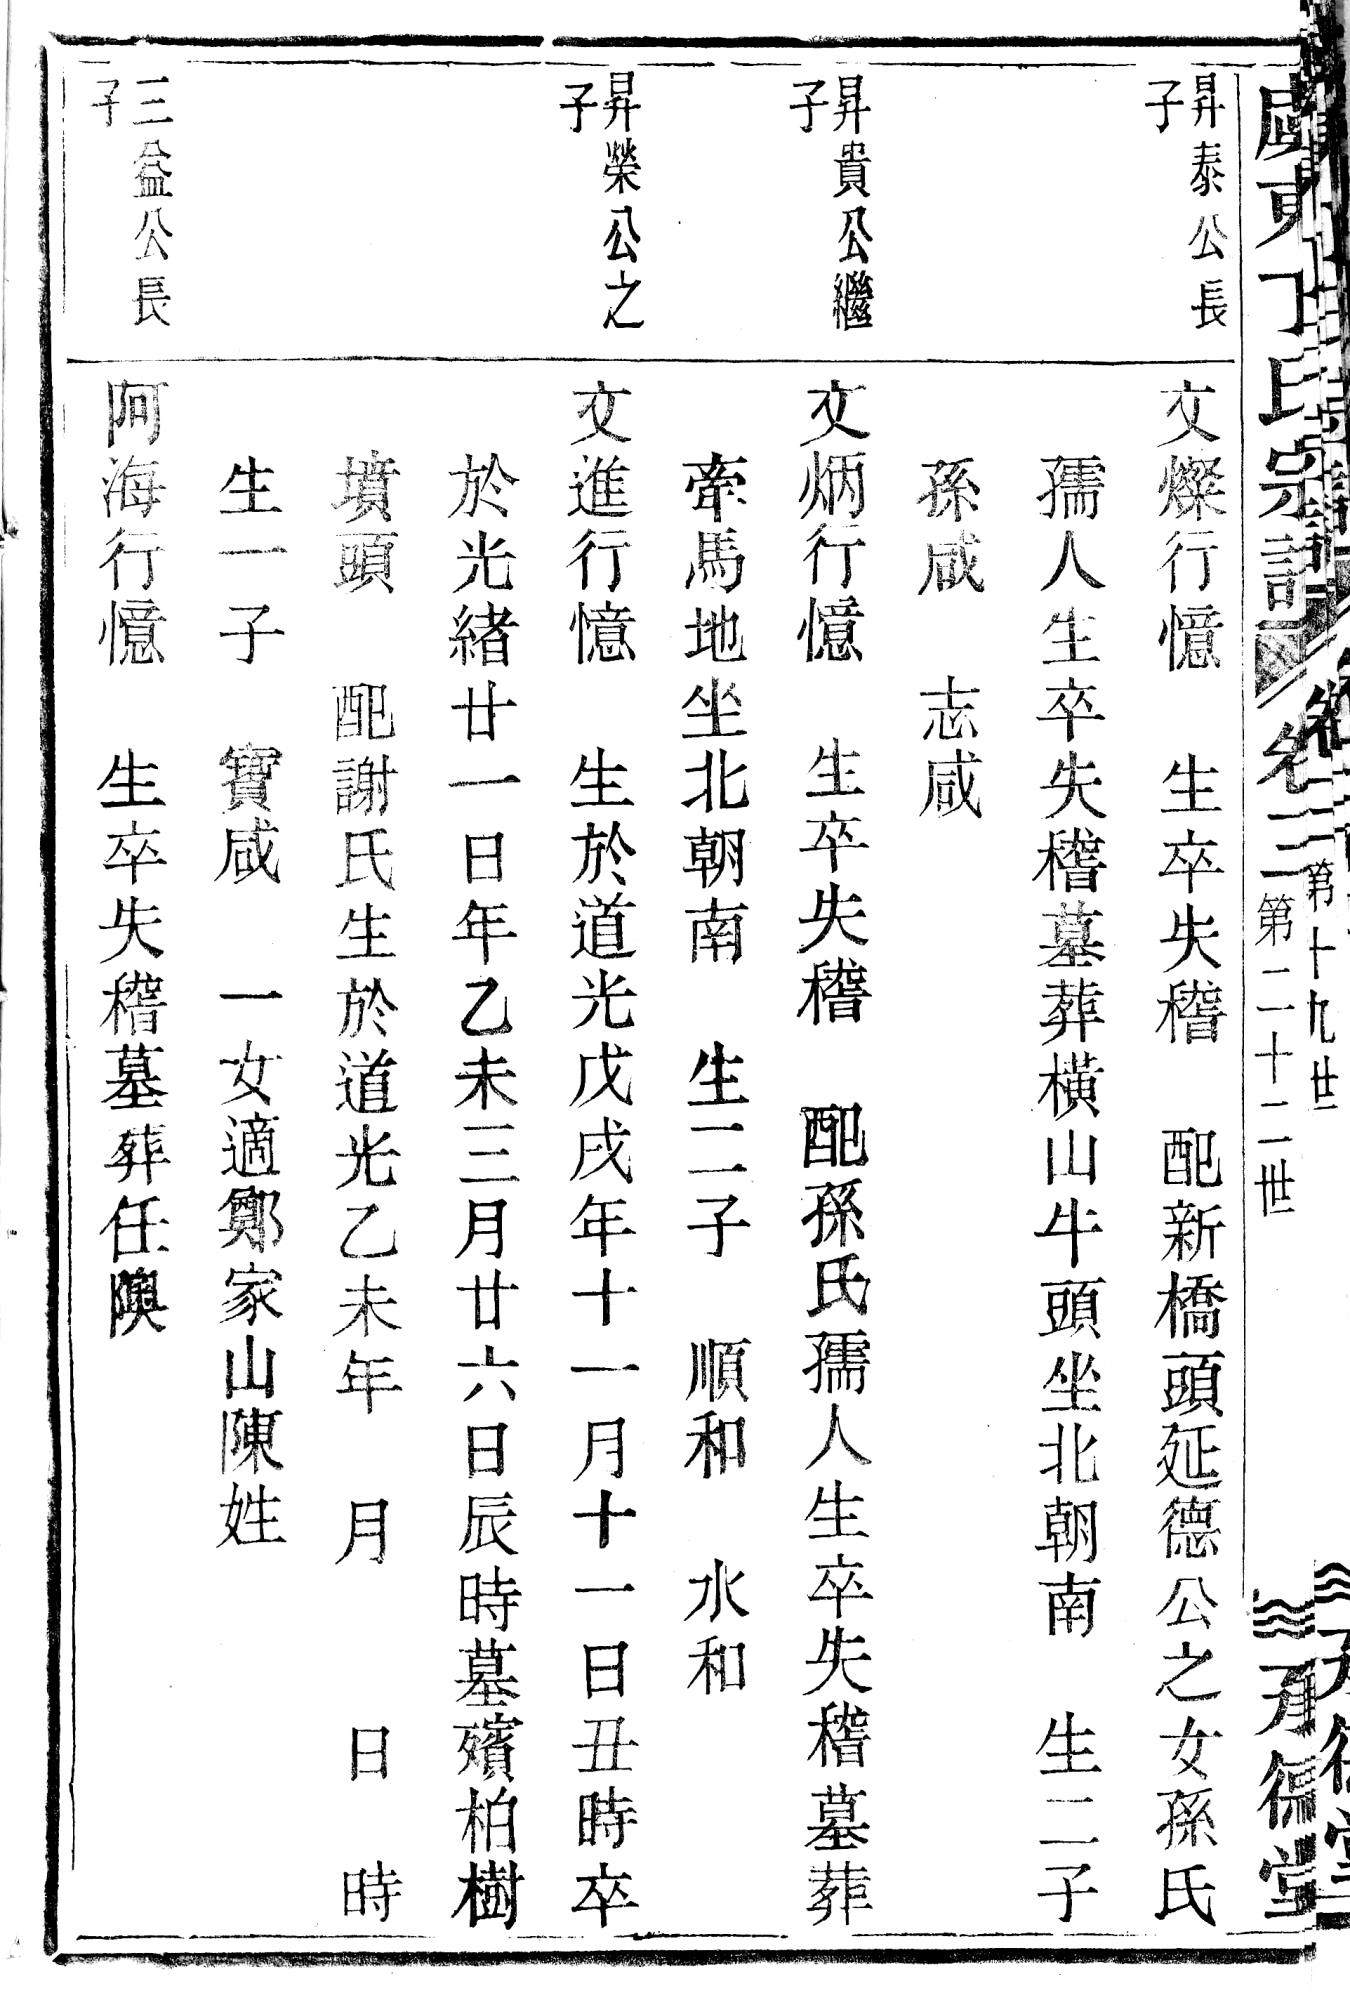 丁氏宗譜 卷二 第二十二世 承德堂
昇泰公長
子
文燦行億 生卒失稽 配新橋頭延德公之女孫氏
孺人生卒失稽墓葬橫山牛頭坐北朝南 生二子
孫咸 志咸
昇貴公繼
子
文炳行億 生卒失稽 配孫氏孺人生卒失稽墓葬
牽馬地坐北朝南 生二子 順和 水和
昇榮公之
子
文進行憶 生於道光戊戌年十一月十一日丑時卒
於光緒廿一日年乙未三月廿六日辰時墓殯柏樹
墳頭 配謝氏生於道光乙未年 月 日 時
生一子 寶咸 一女適鄭家山陳姓
三益公長
子
阿海行憶 生卒失稽墓葬任隩